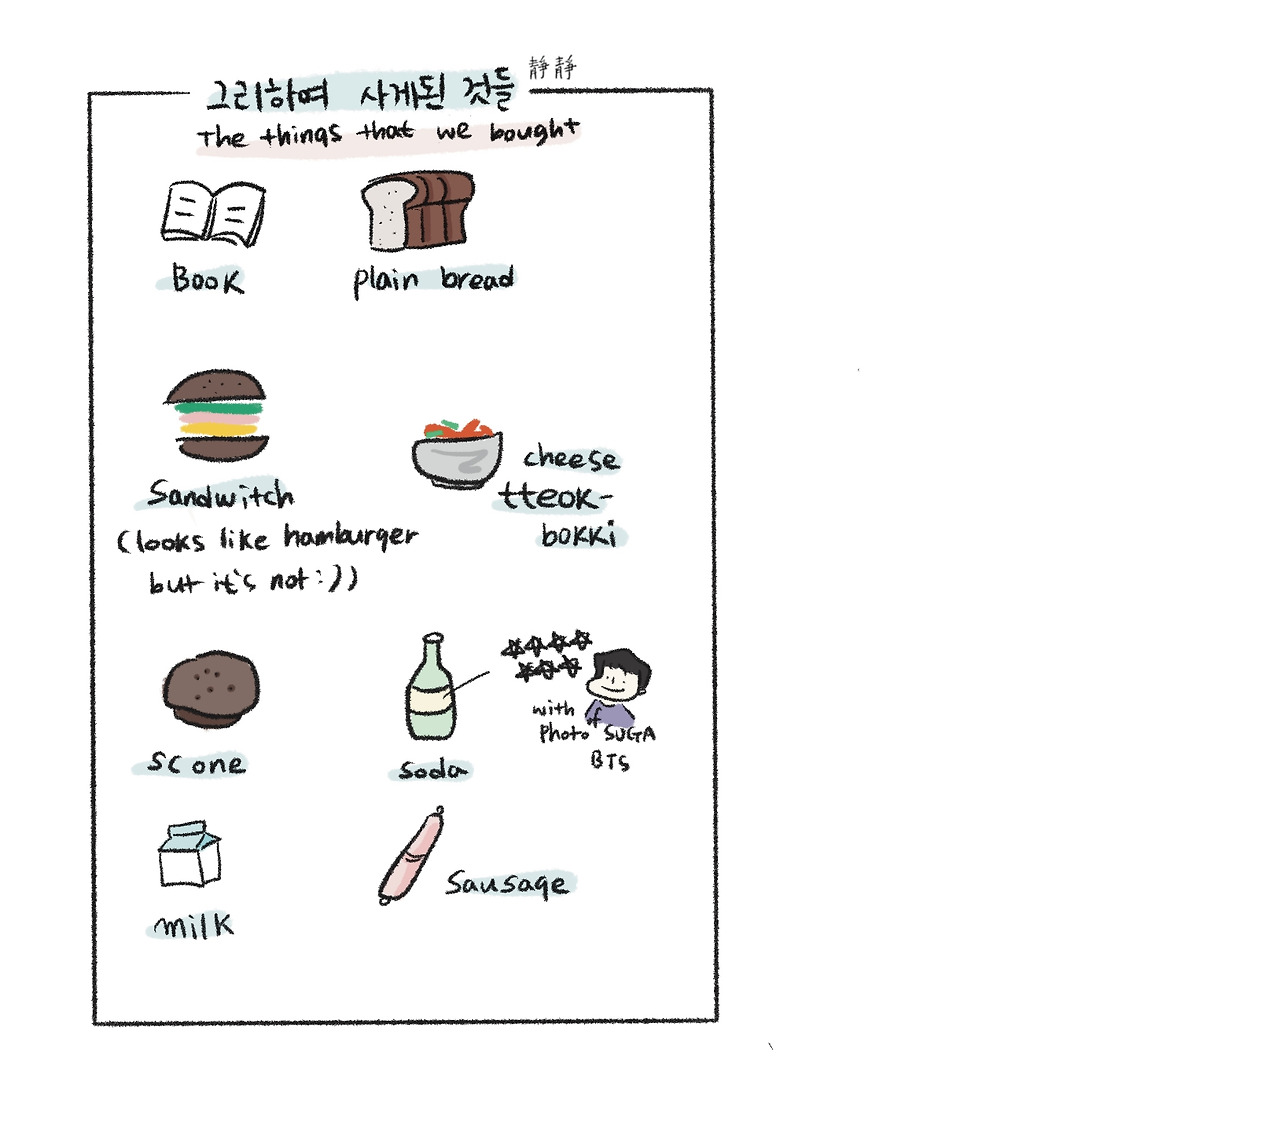 그리하여 사게된 것들 静静
The things that we bought
Book
plain bread
Sandwitch
(looks like hamburger
but it's not :))
cheese
tteok-
bokki
scone
soda
with
photo of SUGA
BTS
milk
Sausage